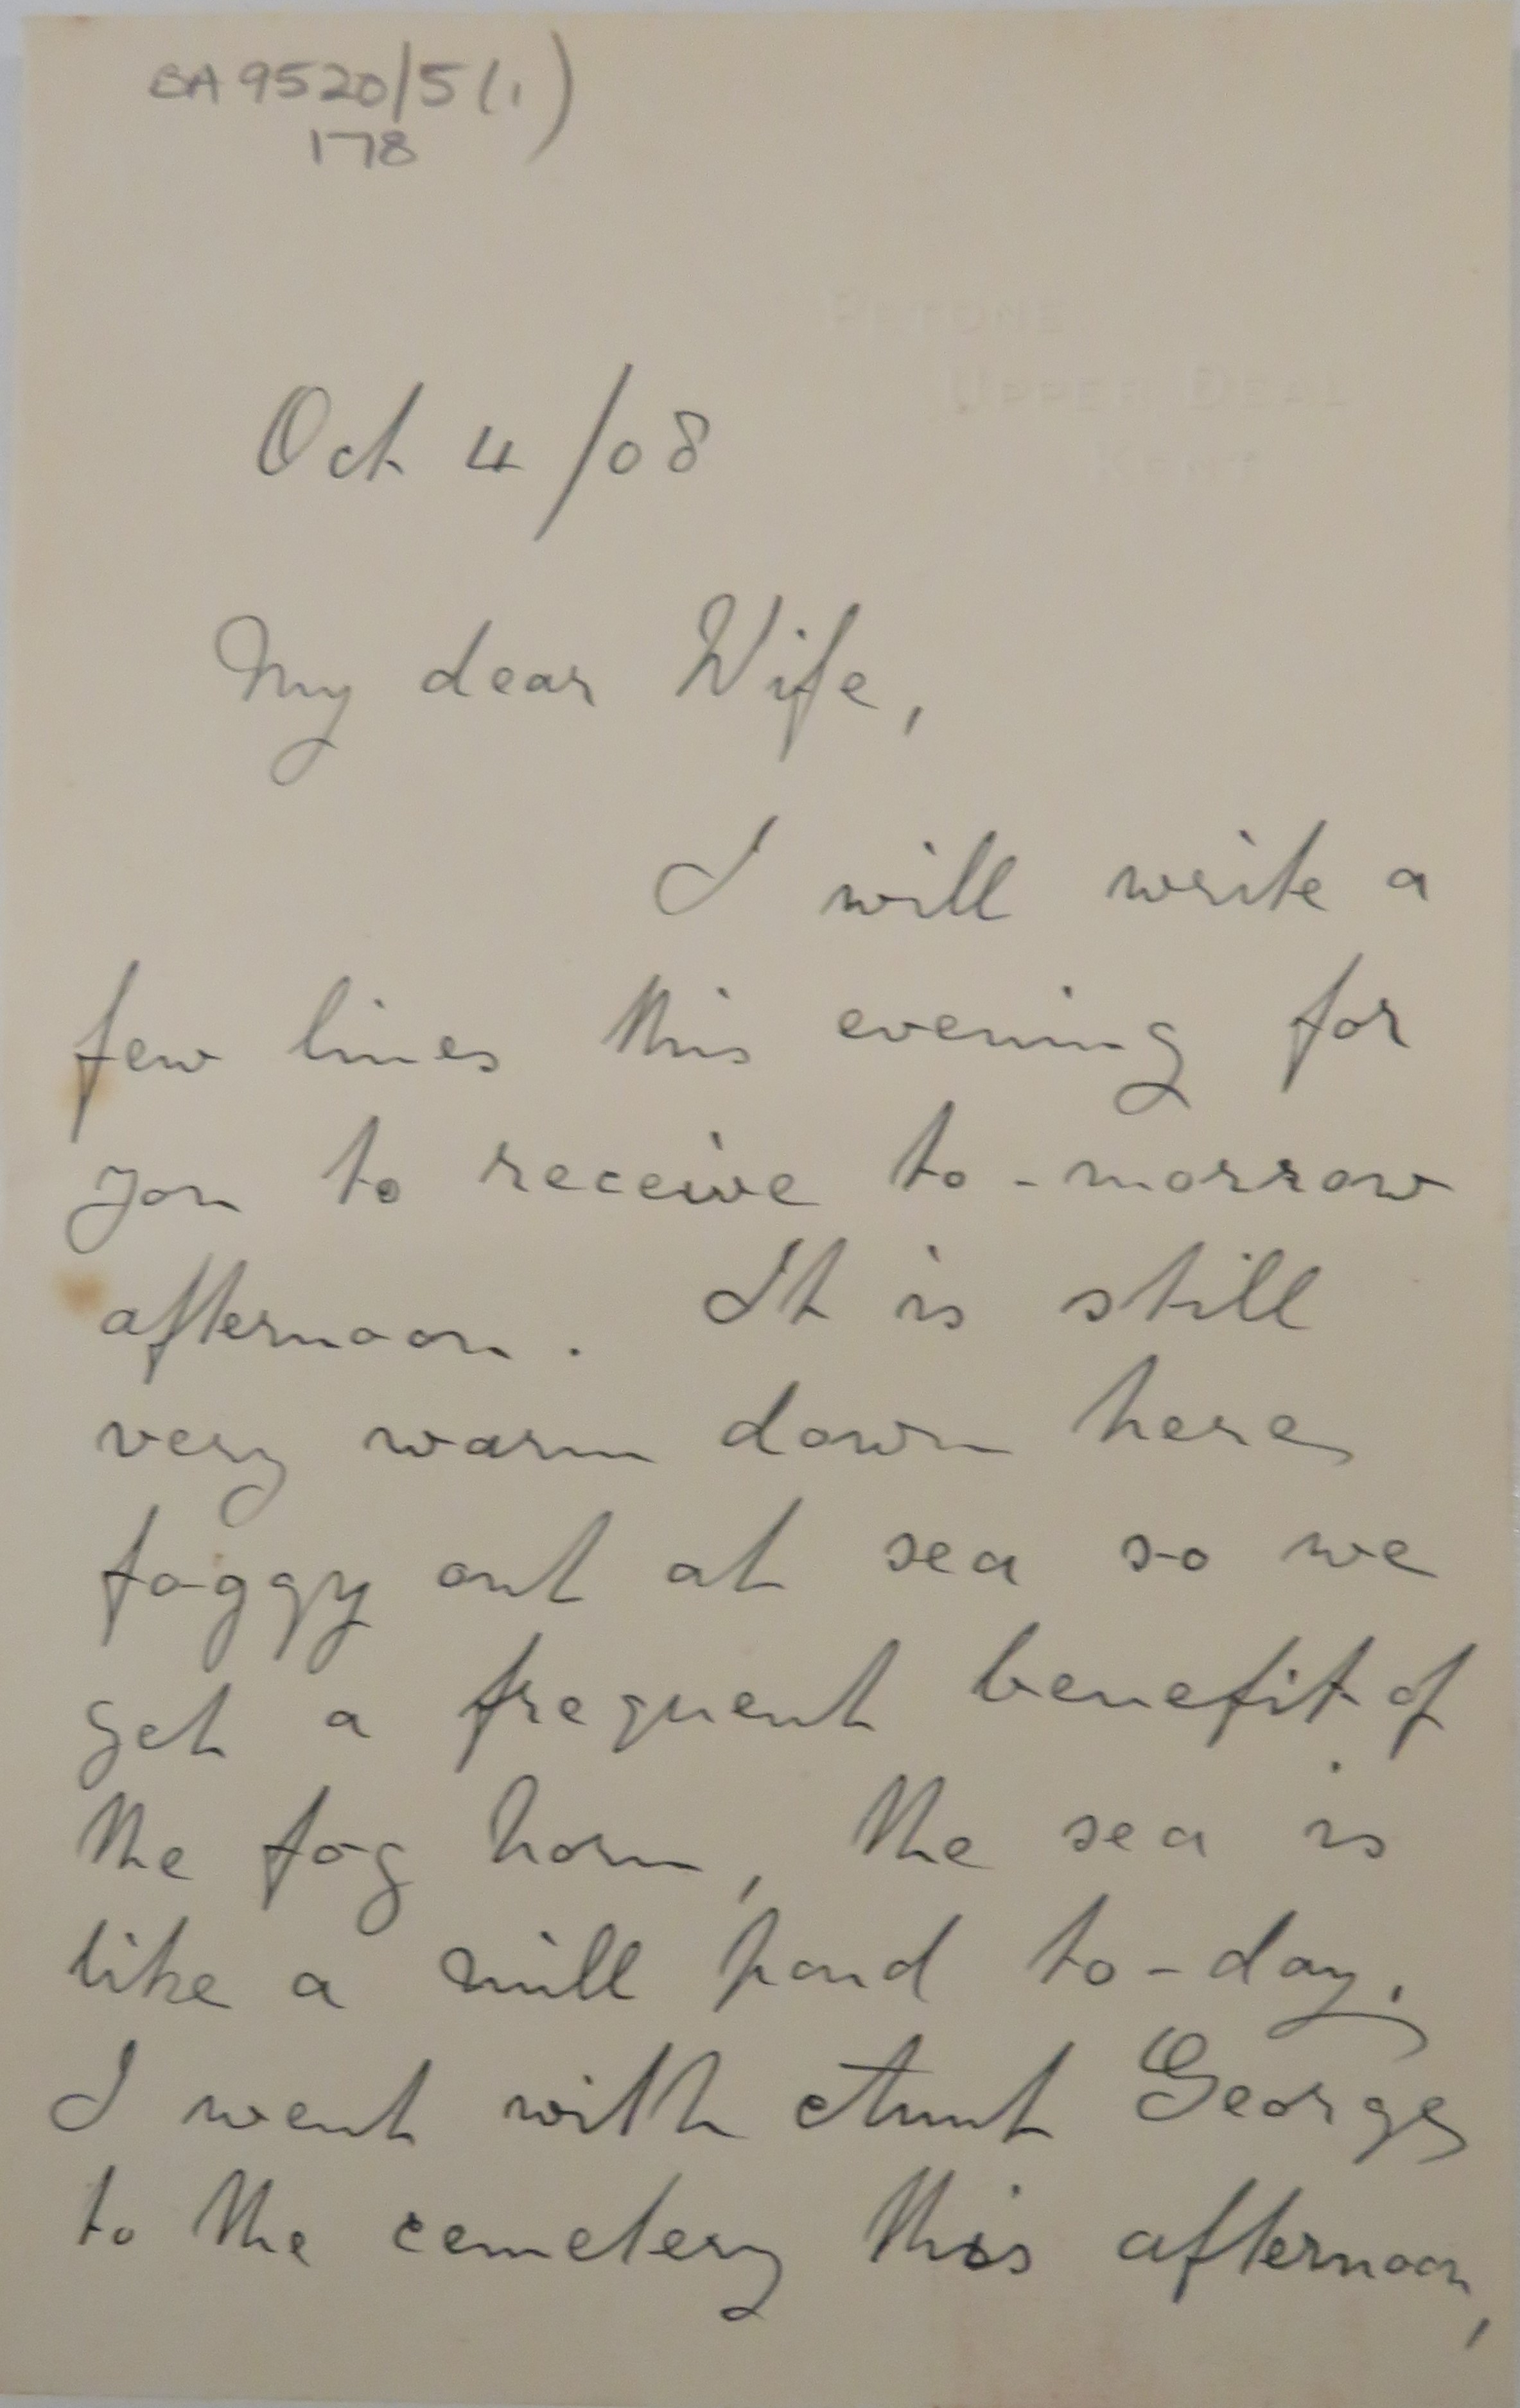 BA 9520/5(1)
178
PETONE
UPPER DEAL
KENT
Oct 4/08
My dear Wife,
I will write a
few lines this evening for
you to receive to-morrow
afternoon. It is still
very warm down here
foggy out at sea so we
get a frequent benefit of
the fog horn, the sea is
like a mill pond to-day.
I went with Aunt George
to the cemetery this afternoon,